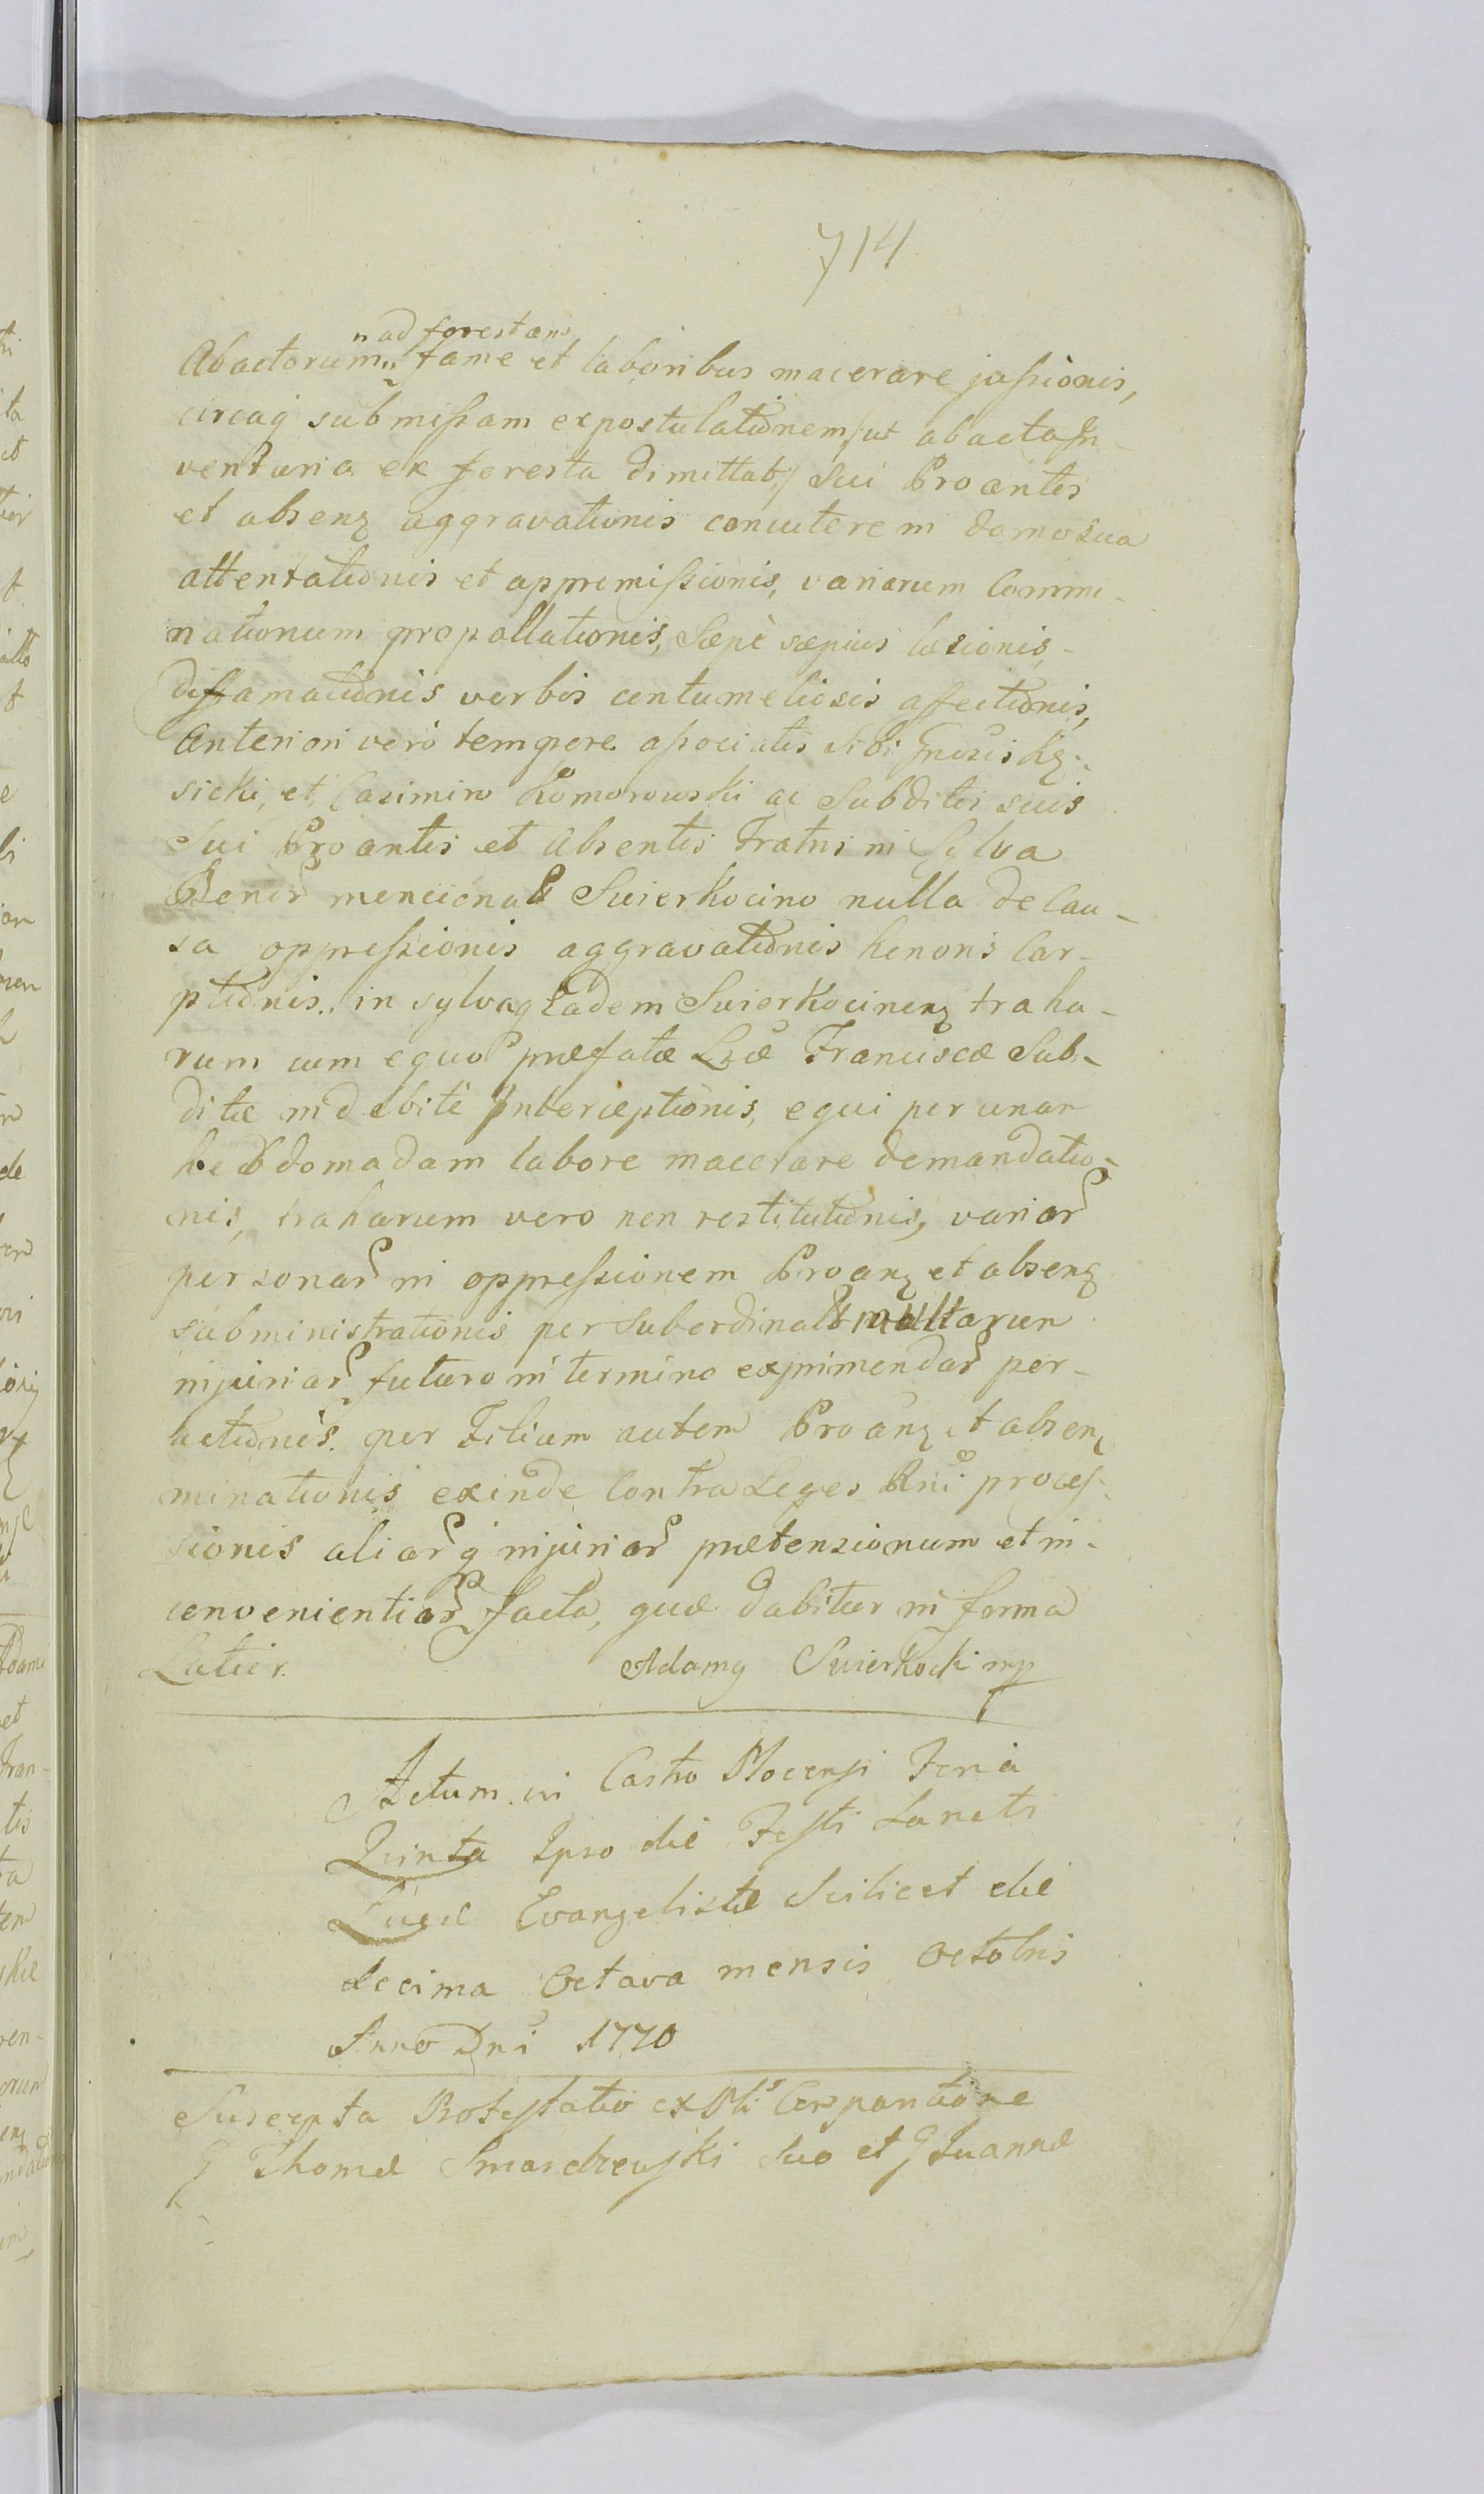 714
"ad forestam
Abactorum" fame et laboribus macerare jussionis,
circaq submissam expostulationem, ut abacta In-
ventaria ex foresta dimittat,/ Sui Proantis
et absenz aggravationis concutere in domo sua
attentationis et appromissionis, variarum Commi-
nationum propallationis, Sæpè sæpius læsionis,
diffamationis verbis contumeliosis affectionis,
Anteriori verò tempore associatis sibi Gnosis
sicki, et Casimiro Komorowski ac Subditis suis
Sui Proantis et Absentis Fratris in Sylva
Bonor mencionat Swierkocino nulla de Cau-
sa oppressionis aggravationis honoris Car-
ptionis, in sylvaq Eadem Swierkocinenz traha-
rum cum equo præfatæ Francisca Sub-
ditæ indebitè Interceptionis, equi per unam
hebdomadam labore macerare demandatio-
nis, traharum vero non restitutionis, variar
personar in oppressionem Proanz et absenz
subministrationis per Subordinat multarum
injuriar futuro in termino exprimendar per-
actionis. per Filium autem Proanz et absenz
minationis exinde Contra Leges Rni proces-
sionis aliarq injuriar prætensionum et in-
convenientiar facta, quæ dabitur in forma
Latior. Adamg Swierkocki mp
Actum in Castro Plocensi Feria
Quinta Ipso die Festi Sancti
Lucæ Evangelistæ Scilicet die
decima Octava mensis Octobris
Anno Dni 1770
Suscepta Protestatio ex Comparitione
G Thomæ Smardzewski suo et G Joannæ